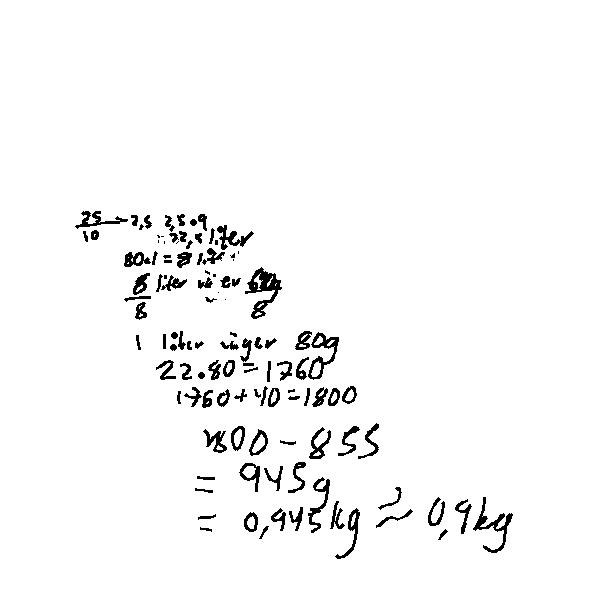 25/10 = 2,5 2,5 · 9
= 22,5 liter
80 · 1 = 8 liter
8/8 liter väger 640g/8
1 liter väger 80g
22 · 80 = 1760
1760 + 40 = 1800
1800 - 855
= 945g
= 0,945kg ≈ 0,9kg